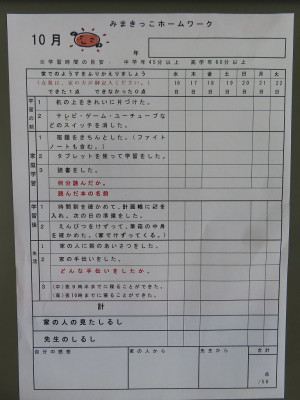 みまきっこホームワーク
10月
年
☆学習時間の目安 中学年45分以上 高学年60分以上
家でのようすをふりかえりましょう
できた1点 できなかった0点
水 木 金 土 日 月 火
16 17 18 19 20 21 22
学習の前
1 机の上をきれいに片づけた。
2 テレビ・ゲーム・ユーチューブな
どのスイッチを消した。
家庭学習
1 宿題をきちんとした。(ファイト
ノートも含む。)
2 タブレットを使って学習をした。
3 読書をした。
何分読んだか。
読んだ本の名前
学習後
1 時間割を確かめて、計画帳に記を
入れ、次の日の準備をした。
2 えんぴつをけずって、筆箱の中身
を確かめた。(家でけずってくる。)
生活
1 家の人に朝のあいさつをした。
2 家の手伝いをした。
どんな手伝いをしたか。
3 (中)夜9時半までに寝ることができた。
(高)夜10時までに寝ることができた。
計
家の人の見たしるし
先生のしるし
自分の感想 家の人から 先生から 合計
点